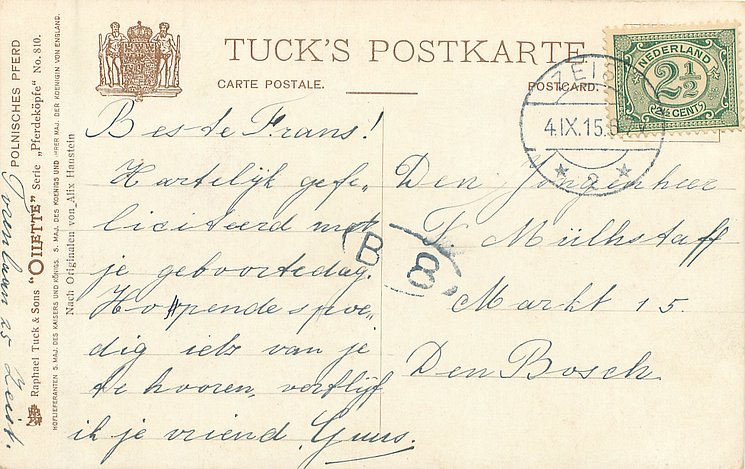 TUCK'S POSTKARTE
CARTE POSTALE.
POSTCARD.
NEDERLAND
2½
2½ CENT
ZEIST
4.IX.15.
2
B
8
Beste Frans!
Hartelijk gefe„
liciteerd met
je geboortedag.
Hoppende spoe„
dig iets van je
te hooren, verblijf
ik je vriend Guus.
Den Jongenheer
F. Mülhstaff
Markt 15.
Den Bosch
POLNISCHES PFERD
Raphael Tuck & Sons "OILETTE" Serie „Pferdeköpfe" No. 810.
HOFLIEFERANTEN S. MAJ. DES KAISERS UND KÖNIGS. S. MAJ. DES KOENIGS UND IHRER MAJ. DER KOENIGIN VON ENGLAND.
Nach Originalen von Alix Haustein
25 Zeist.